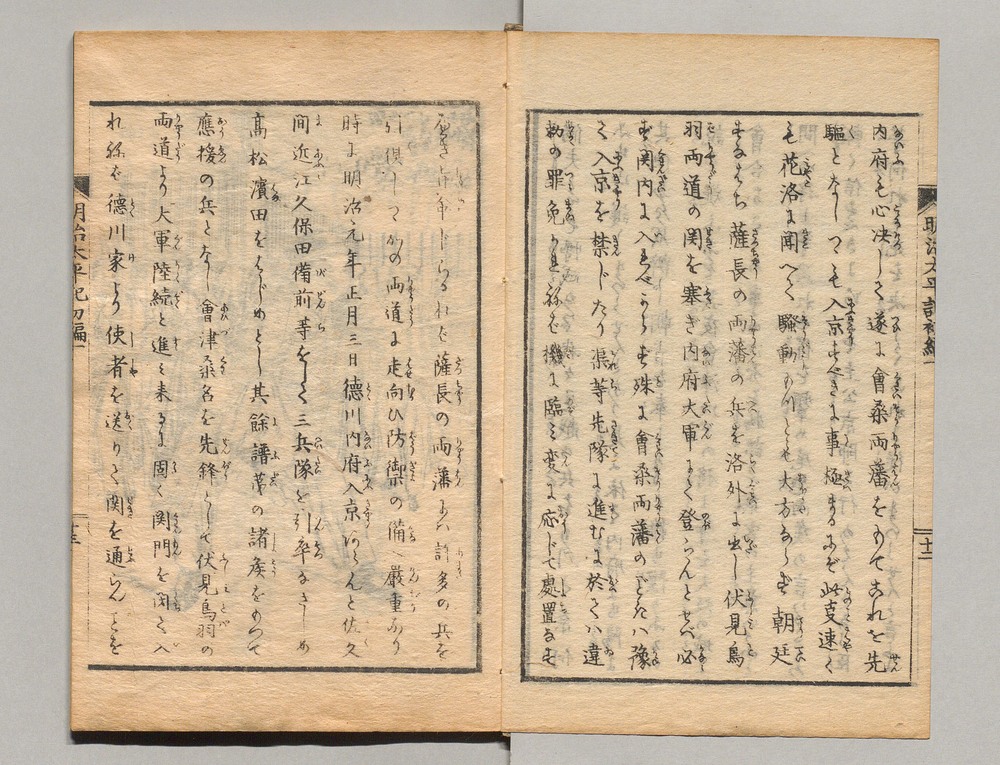 内府も心决しく遂に會桑両藩をもてあれを先
驅となしつゝも入京すべきに事極まるにぞ此叓速く
も花洛に聞へく騒動おほかたならず朝廷
すなはち薩長の両藩の兵を洛外に出し伏見鳥
羽両道の関を塞ぎ内府大軍にく登らんとせバ必
ず関内に入るべからず殊に會桑両藩のごときハ豫
て入京を禁じたり渠等先隊に進むに於てハ違
勅の罪免かれねバ機に臨ミ変に応じて處置なせ
薩長の両藩にハ許多の兵を
引倶しつゝかの両道に走向ひ防禦の備へ厳重なり
時に明治元年正月三日徳川内府入京あらんと佐久
間近江久保田備前等をして三兵隊を引率なさしめ
高松濱田をはじめとし其餘譜第の諸侯をもつて
應援の兵となし會津桑名を先鋒として伏見鳥羽の
両道より大軍陸続と進ミ来るに固く関門を閉て入
れねバ徳川家より使者を送りて関を通らんことを
明治太平記初編一
十二
明治太平記初編一
十三